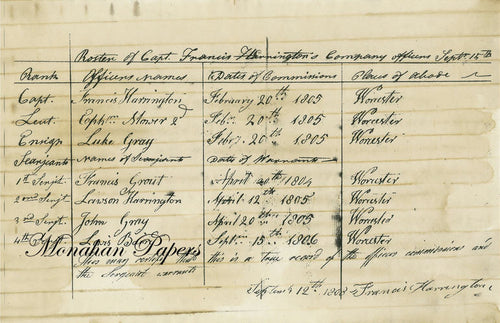 Roster of Capt. Francis Harrington's Company officers Sept. 15th
Rank Officers Names Dates of Commissions Places of abode
Capt. Francis Harrington February 20th 1805 Worcester
Lieut. Mower 2d Feb. 20th 1805 Worcester
Ensign Luke Gray Feby. 20th 1805 Worcester
Searjants Names of Searjants Dates of Warrants
1st Serjt. Francis Grout April 1804 Worcester
2nd Serjt. Lawson Harrington April 12th 1805 Worcester
3rd Serjt. John Gray April 20th 1805 Worcester
4th Lewis Sept. 15th 1806 Worcester
Monahan Papers
this may certify that this is a true record of the officers commissions and
the Serjeant warrants
12th Francis Harrington